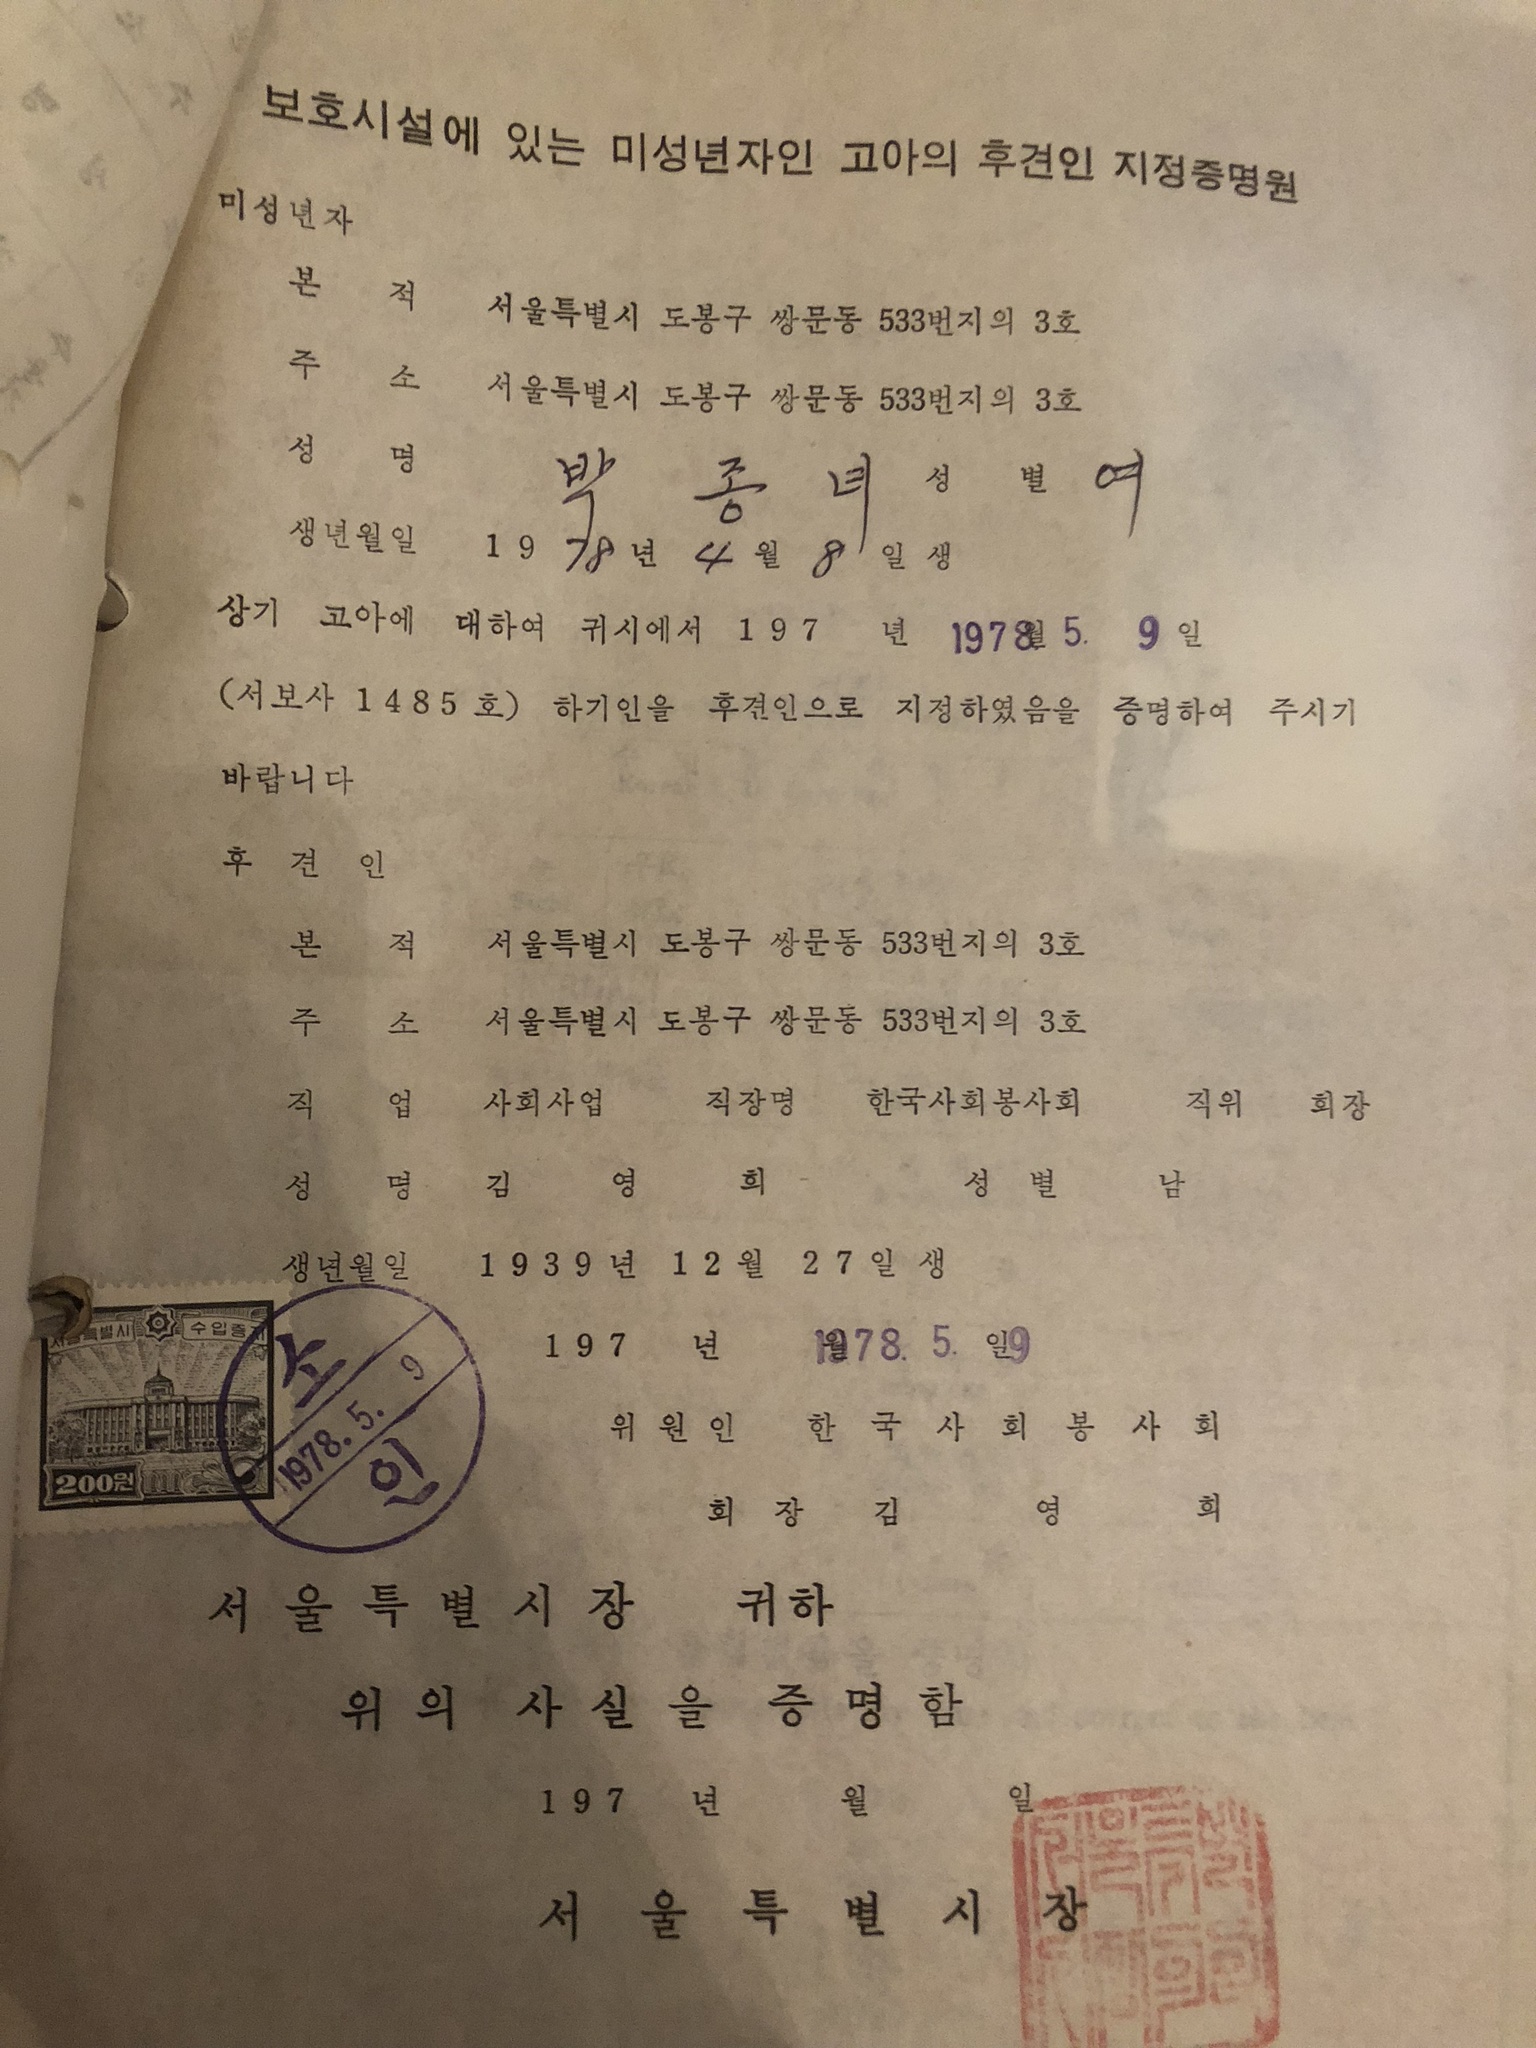 보호시설에 있는 미성년자인 고아의 후견인 지정증명원
미성년자
본 적 서울특별시 도봉구 쌍문동 533번지의 3호
주 소 서울특별시 도봉구 쌍문동 533번지의 3호
성 명 박 종 녀 성 별 여
생년월일 1978년 4월 8일생
상기 고아에 대하여 귀시에서 197 년 1978월 5. 9일
(서보사 1485호) 하기인을 후견인으로 지정하였음을 증명하여 주시기
바랍니다
후 견 인
본 적 서울특별시 도봉구 쌍문동 533번지의 3호
주 소 서울특별시 도봉구 쌍문동 533번지의 3호
직 업 사회사업 직장명 한국사회봉사회 직위 회장
성 명 김 영 희 성 별 남
생년월일 1939년 12월 27일생
197 년 월 1978. 5. 일9
서울특별시 수입증지
200원
소
1978. 5. 9
인
위원인 한국사회봉사회
회장 김 영 희
서울특별시장 귀하
위의 사실을 증명함
197 년 월 일
서울특별시장